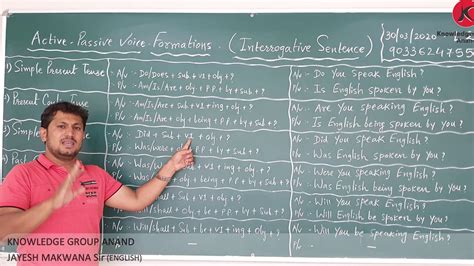 Active-Passive Voice-Formations. (Interrogative Sentence)
Knowledge
30/03/2020
9033624755
1) Simple Present Tense
A/v - Do/Does + Sub + V1 + obj + ?
A/v - Do You Speak English?
P/v - Am/Is/Are + obj + PP + by + Sub + ?
P/v - Is English spoken by you?
Present Cont. Tense
A/v - Am/Is/Are + Sub + V1 + ing + obj + ?
A/v - Are You speaking English?
P/v - Am/Is/Are + obj + being + PP + by + Sub + ?
P/v - Is English being spoken by you?
3) Simple
A/v - Did + Sub + V1 + obj + ?
A/v - Did You speak English?
P/v - Was/Were + obj + PP + by + Sub + ?
P/v - Was English spoken by you?
Past
A/v - Was/Were + Sub + V1 + ing + obj + ?
A/v - Were You speaking English?
P/v - Was/Were + obj + being + PP + by + Sub + ?
P/v - Was English being spoken by you?
A/v - Will/Shall + Sub + V1 + obj + ?
A/v - Will You speak English?
P/v - Will/Shall + obj + be + PP + by + Sub + ?
P/v - Will English be spoken by you?
A/v - Will/Shall + Sub + be + V1 + ing + obj + ?
A/v - Will You be speaking English?
P/v -
P/v -
KNOWLEDGE GROUP ANAND
JAYESH MAKWANA Sir (ENGLISH)